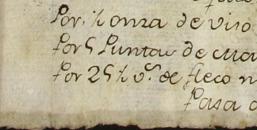 Por. ½ onza de viso
Por 5 Puntas de Ma
Por 25 ½ vs. de fleco n
Pasa a